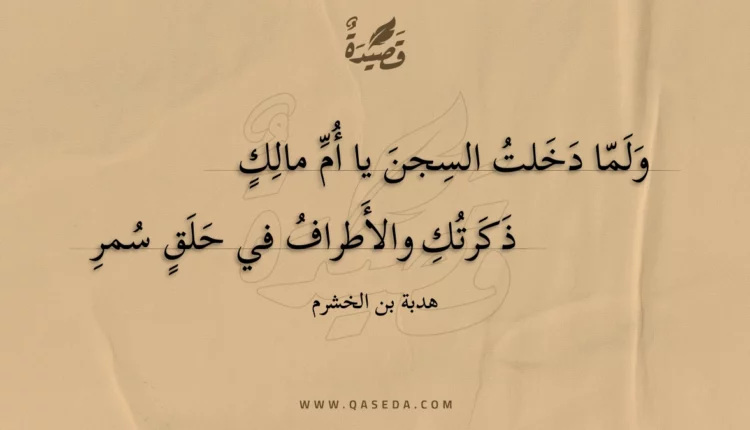 قَصِيدَةٌ
وَلَمّا دَخَلتُ السِجنَ يا أُمِّ مالِكٍ
ذَكَرتُكِ والأَطرافُ في حَلَقٍ سُمرِ
هدبة بن الخشرم
WWW.QASEDA.COM